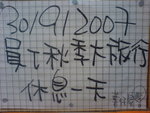 30/9/2007
員工秋季大旅行
休息一天